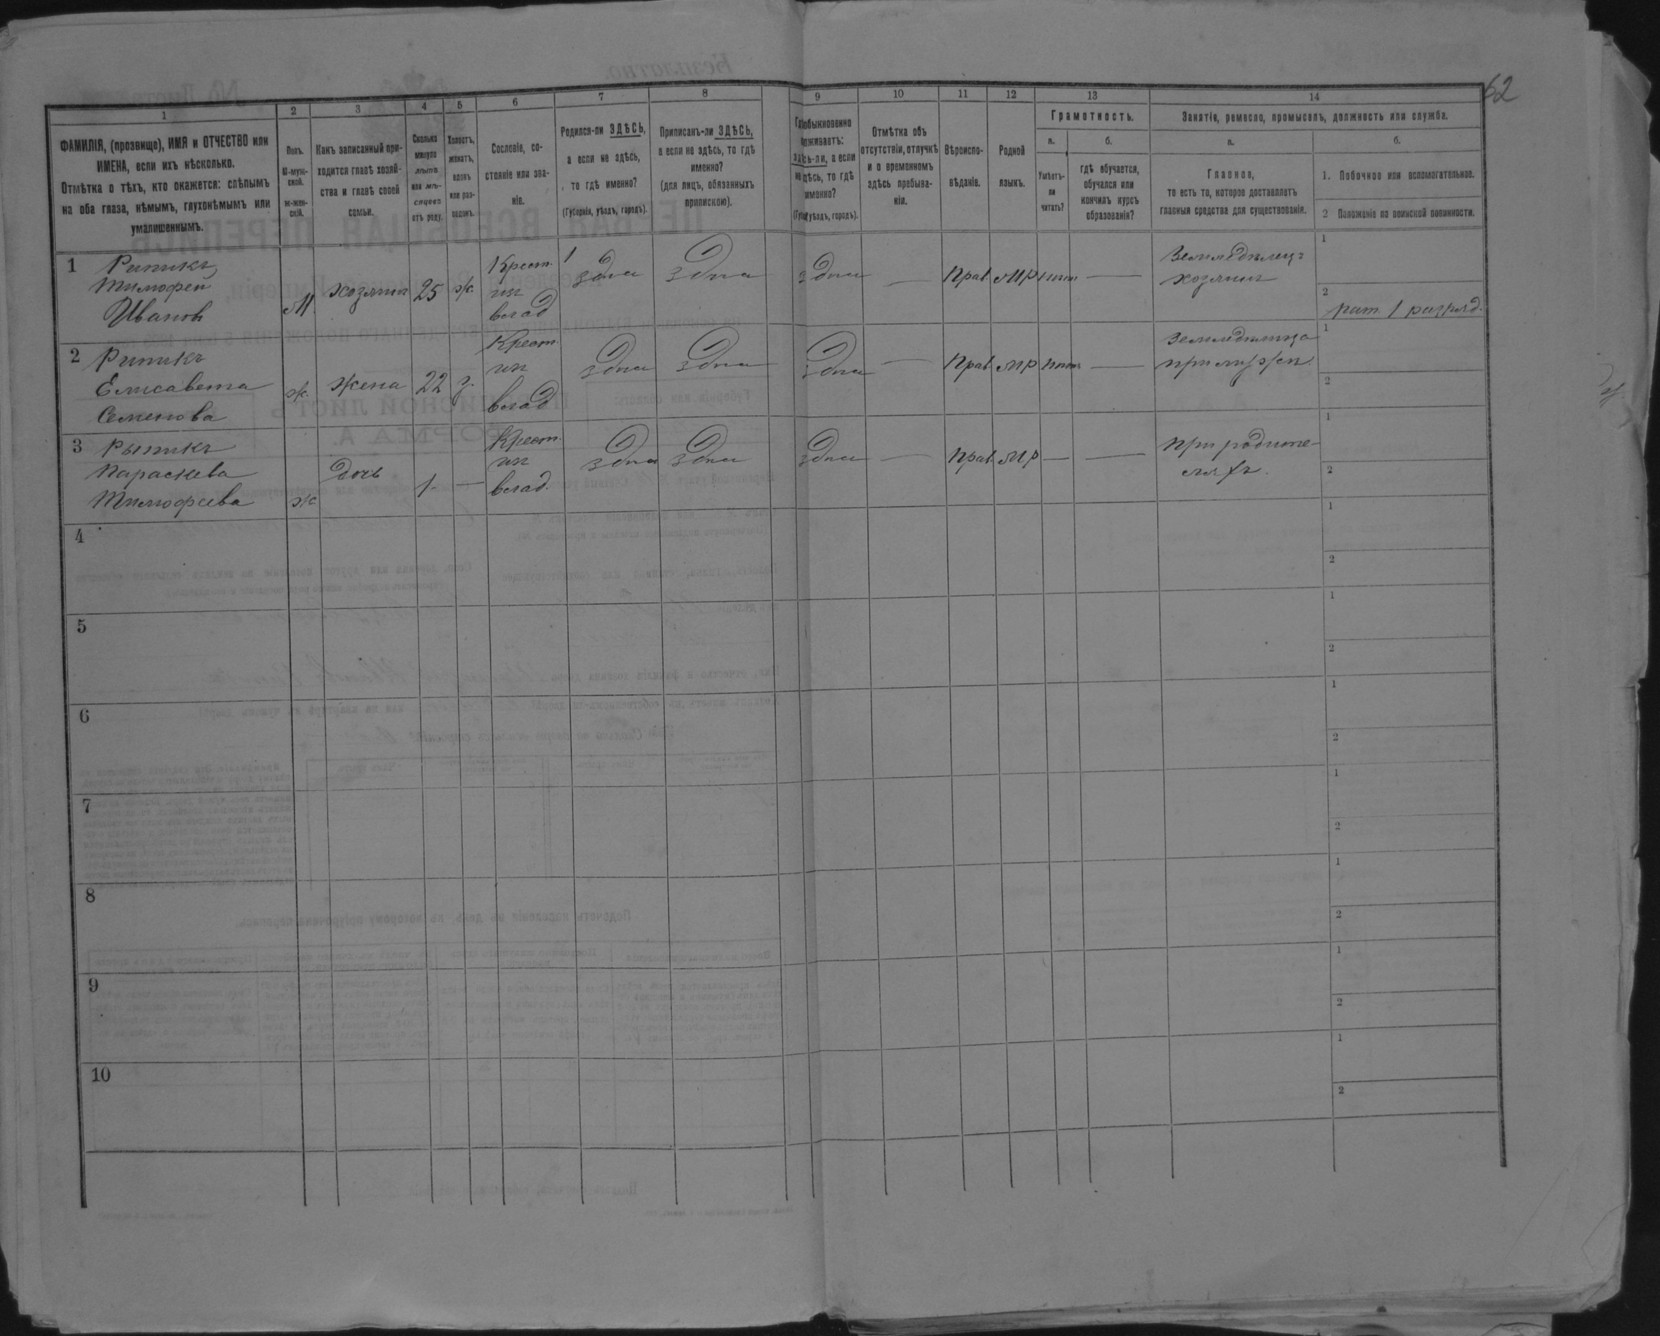 62
1 2 3 4 5 6 7 8 9 10 11 12 13 14
ФАМИЛІЯ, (прозвище), ИМЯ и ОТЧЕСТВО или
ИМЕНА, если ихъ нѣсколько.
Отмѣтка о тѣхъ, кто окажется: слѣпымъ
на оба глаза, нѣмымъ, глухонѣмымъ или
умалишеннымъ.
Полъ.
М-муж-
ской.
Ж-жен-
скій.
Какъ записанный при-
ходится главѣ хозяй-
ства и главѣ своей
семьи.
Сколько
минуло
лѣтъ
или мѣ-
сяцевъ
отъ роду.
Холостъ,
женатъ,
вдовъ
или раз-
веденъ.
Сословіе, со-
стояніе или зва-
ніе.
Родился-ли ЗДѢСЬ,
а если не здѣсь,
то гдѣ именно?
(Губернія, уѣздъ, городъ).
Приписанъ-ли ЗДѢСЬ,
а если не здѣсь, то гдѣ
именно?
(для лицъ, обязанныхъ
припискою).
именно?
Отмѣтка объ
отсутствіи, отлучкѣ
и о временномъ
здѣсь пребыва-
ніи.
Вѣроиспо-
вѣданіе.
Родной
языкъ.
Грамотность.
а.
Умѣетъ-
ли
читать?
б.
гдѣ обучается,
обучался или
кончилъ курсъ
образованія?
Занятіе, ремесло, промыселъ, должность или служба.
а.
Главное,
то есть то, которое доставляетъ
главныя средства для существованія.
б.
1. Побочное или вспомогательное.
2 Положеніе по воинской повинности.
1 Рипикъ
Тимофей
Иванов
М
хозяин
25
ж.
Крест.
из
влад
здѣсь
здѣсь
здѣсь
—
Прав
МР
нѣт
—
Земледѣлец
хозяин
1
2
рат. 1 разряд.
2 Рипикъ
Елисавета
Семенова
ж.
жена
22
з.
Крест
из
влад
здѣсь
здѣсь
здѣсь
—
Прав
МР
нѣт
—
при мужѣ
1
2
3 Рыпикъ
Параскева
Тимофеева
ж
дочь
1.
—
Крест
из
влад.
здѣсь
здѣсь
здѣсь
—
Прав
МР
—
—
При родите-
лях.
1
2
4
1
2
5
1
2
6
1
2
7
1
2
8
1
2
9
1
2
10
1
2